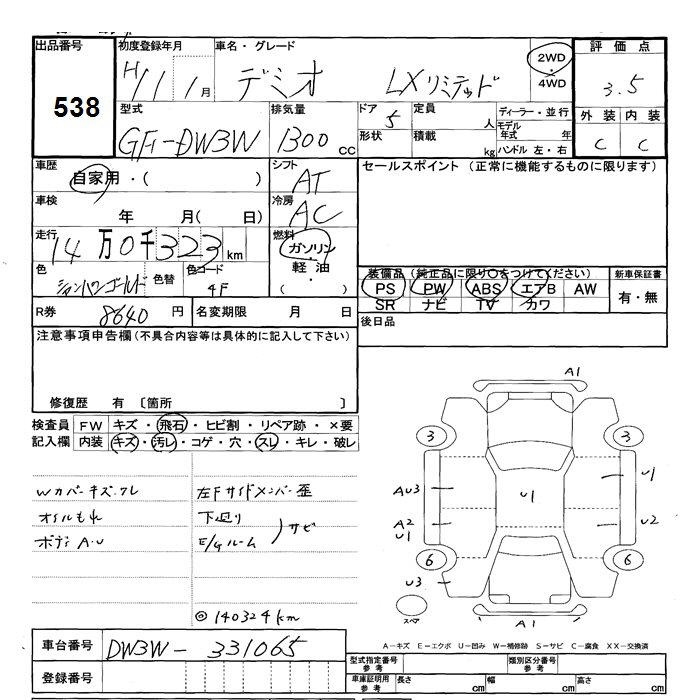 出品番号 初度登録年月 車名・グレード 評価点
538
H11 1月 デミオ LXリミテッド 2WD・4WD 3.5
型式 排気量 ドア 定員 ディーラー・並行 外装 内装
GF-DW3W 1300cc 5 人 モデル年式 年 C C
形状 積載 kg ハンドル 左・右
車歴 シフト セールスポイント (正常に機能するものに限ります)
自家用・( ) AT
車検 冷房
年 月( 日) AC
走行 燃料
14万0千323km ガソリン・軽油・( )
色 色替 色コード 装備品(純正品に限り○をつけてください) 新車保証書
シャンパンゴールド 4F PS PW ABS エアB AW 有・無
SR ナビ TV カワ
R券 8640円 名変期限 月 日 後日品
注意事項申告欄(不具合内容等は具体的に記入して下さい)
修復歴 有 〔箇所 〕
検査員記入欄 FW キズ・飛石・ヒビ割・リペア跡・×要
内装 キズ・汚レ・コゲ・穴・スレ・キレ・破レ
Wカバーキズ.ワレ 左Fサイドメンバー歪
オイルもれ 下廻り
ボディA.U E/Gルーム サビ
◎140324km
A1
3 3
AU3 U1 U1
A2 U2
U1
6 6
U3
スペア A1
A−キズ E−エクボ U−凹み W−補修跡 S−サビ C−腐食 XX−交換済
車台番号 DW3W-331065
登録番号
型式指定番号 参考 類別区分番号 参考
車庫証明用 参考 長さ cm 幅 cm 高さ cm